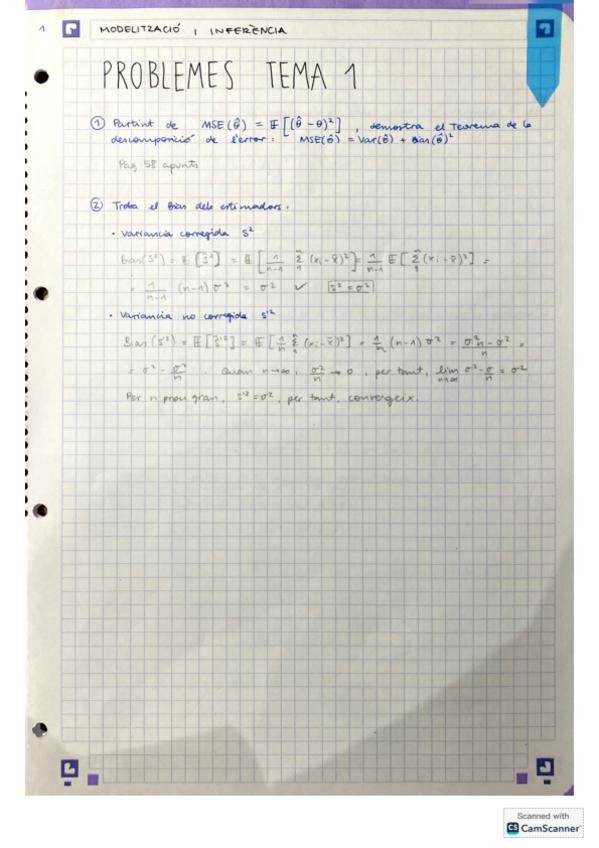 1 MODELITZACIÓ I INFERÈNCIA
PROBLEMES TEMA 1
① Partint de MSE(θ̂) = E[(θ̂ - θ)²], demostra el Teorema de la
descomposició de l'error: MSE(θ̂) = Var(θ̂) + Bias(θ̂)²
Pag 58 apunts
② Troba el Bias dels estimadors.
• Variancia corregida S²
Bias(S²) = E[Ŝ²] = E[1/n-1 Σ (xi - x̄)²] = 1/n-1 E[Σ (xi - x̄)²] =
= 1/n-1 (n-1) σ² = σ² ✓ S² = σ²
• Variancia no corregida S'²
Bias(S'²) = E[Ŝ'²] = E[1/n Σ (xi - x̄)²] = 1/n (n-1) σ² = σ²n - σ²/n =
= σ² - σ²/n. Quan n→∞, σ²/n → 0, per tant, lim n→∞ σ² - σ/n = σ²
Per n prou gran, S'² = σ², per tant, convergeix.
Scanned with
CS CamScanner